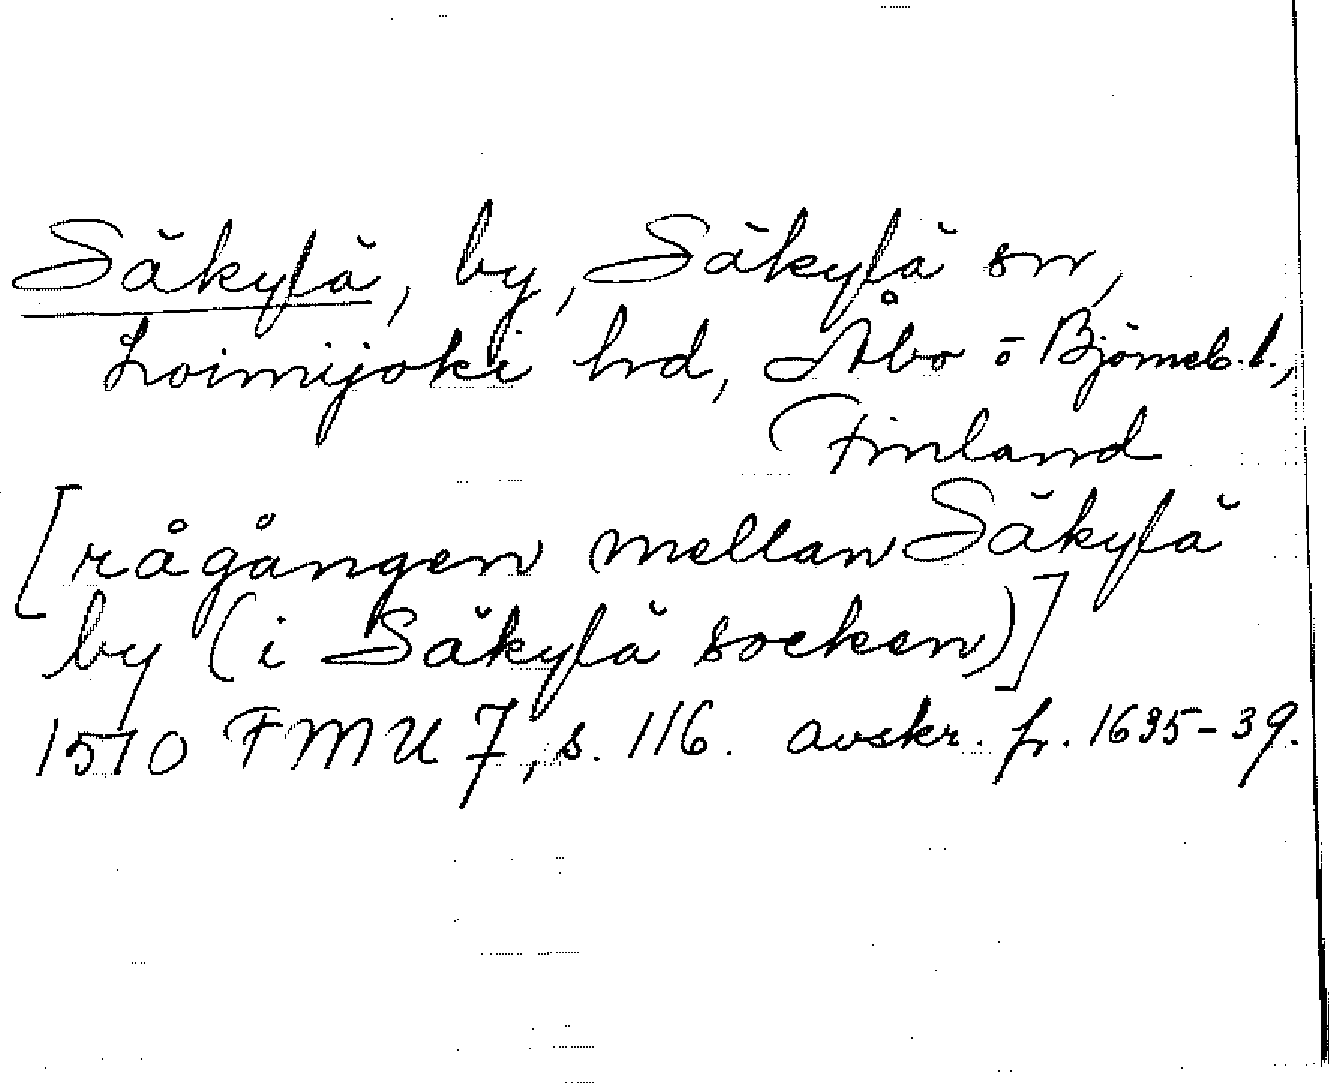 Säkylä, by, Säkylä sn,
Loimijoki hd, Åbo ö Björneb. l.,
Finland
[rågången mellan Säkylä
by (i Säkylä socken)]
1510 FMU 7, s. 116. avskr. fr. 1635-39.